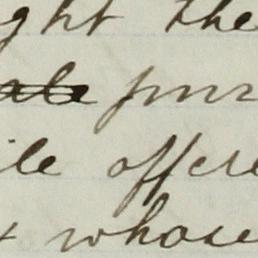 ght the
ate pur
ile offere
whose